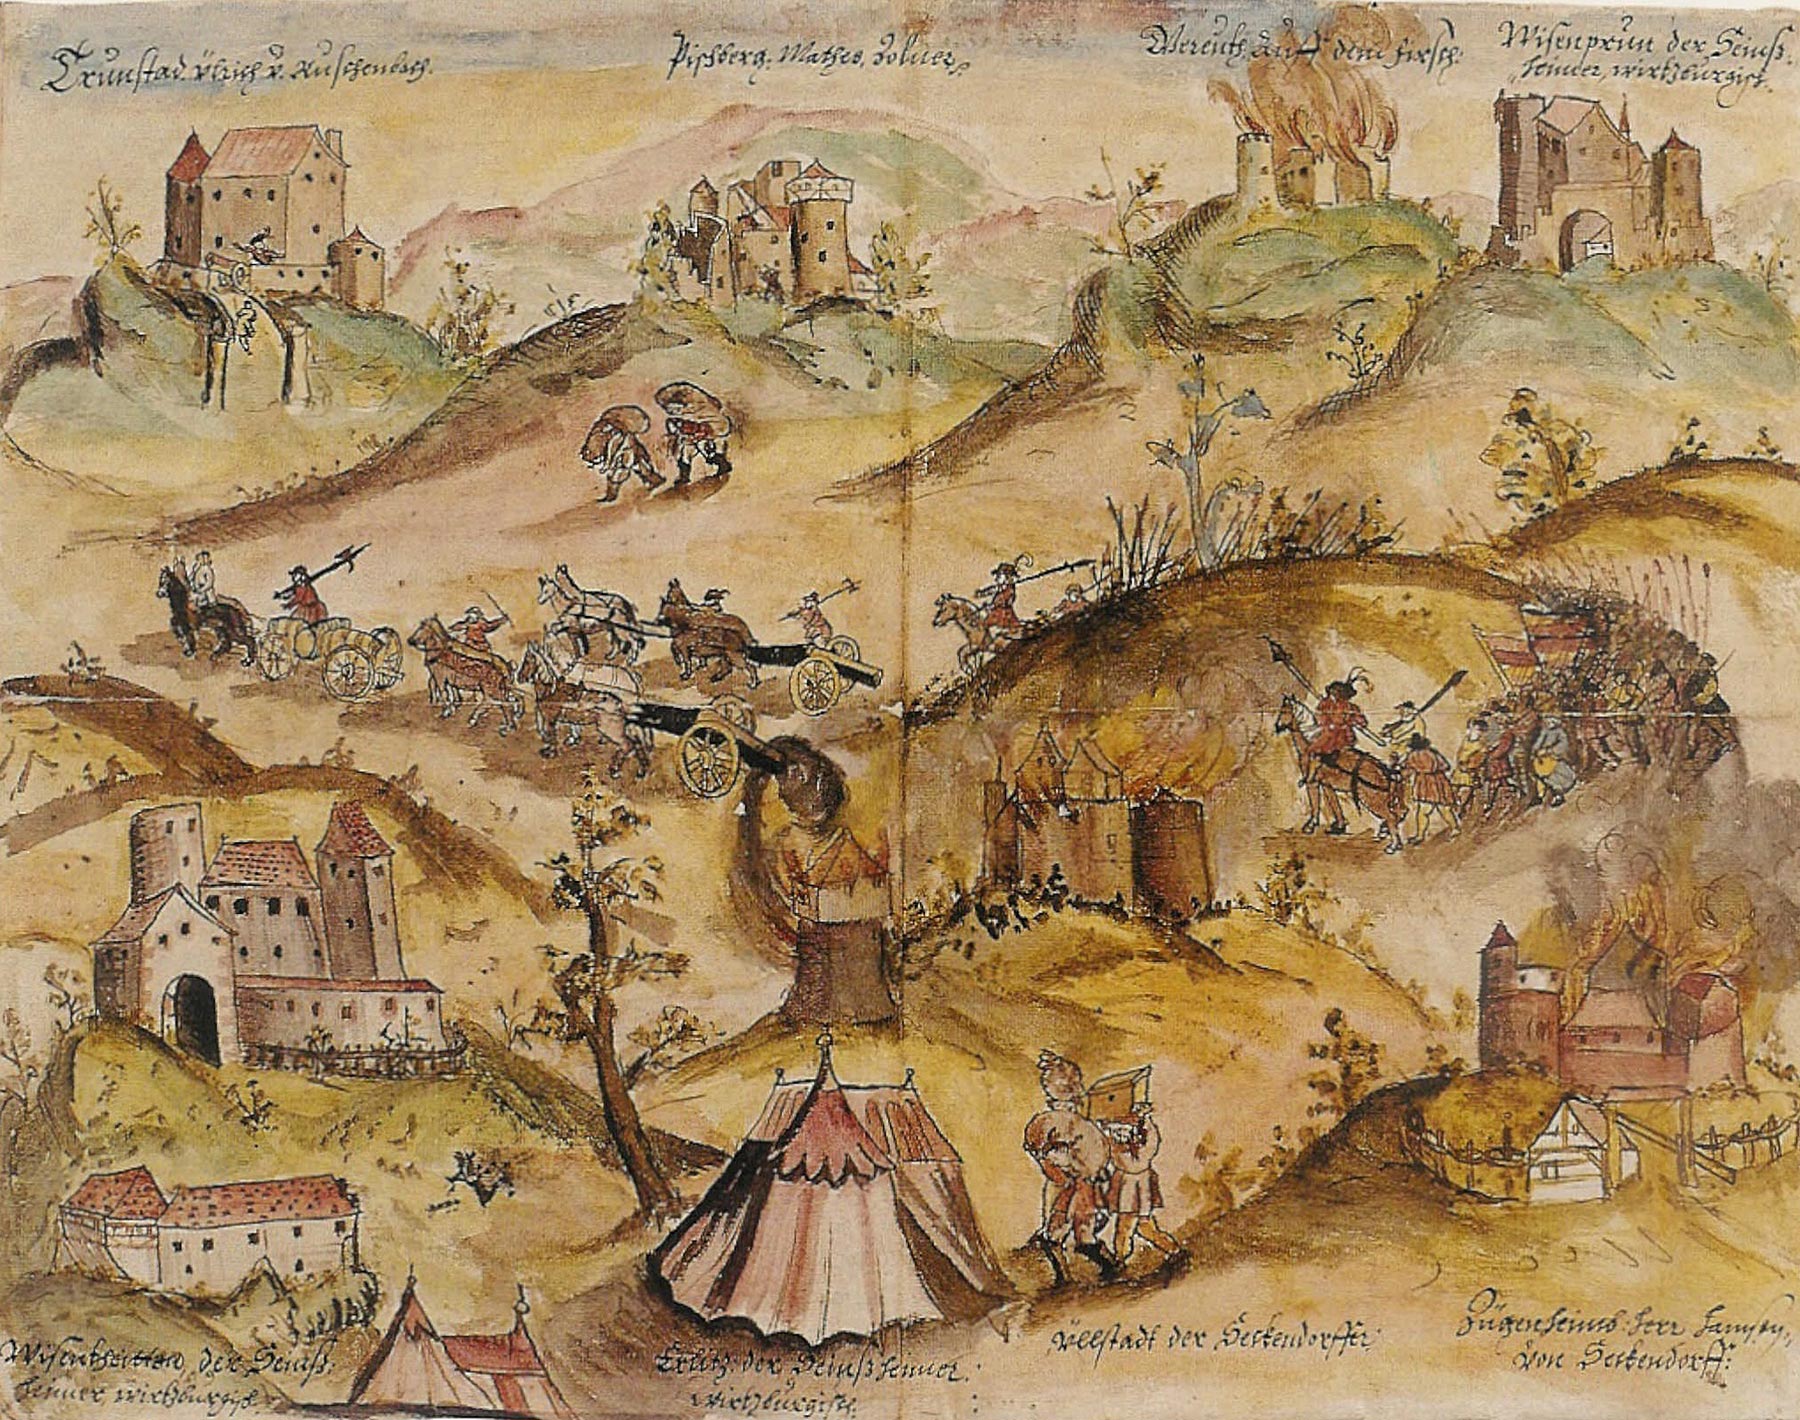 Trunstad Ulrich v. Ruschenbach.
Pischberg. Mathes Zolner.
Vereuth. Auff dem firsch:
Wisenprun der Seinß:
heimer, wirtzburgisch.
Wisentheittan, der Seinß:
heimer, wirtzburgisch.
Erlitz: der Seinßheimer:
wirtzburgisch.
Üllstadt der Seckendorffer:
Zügenheimb: herr Hansen,
von Seckendorff: